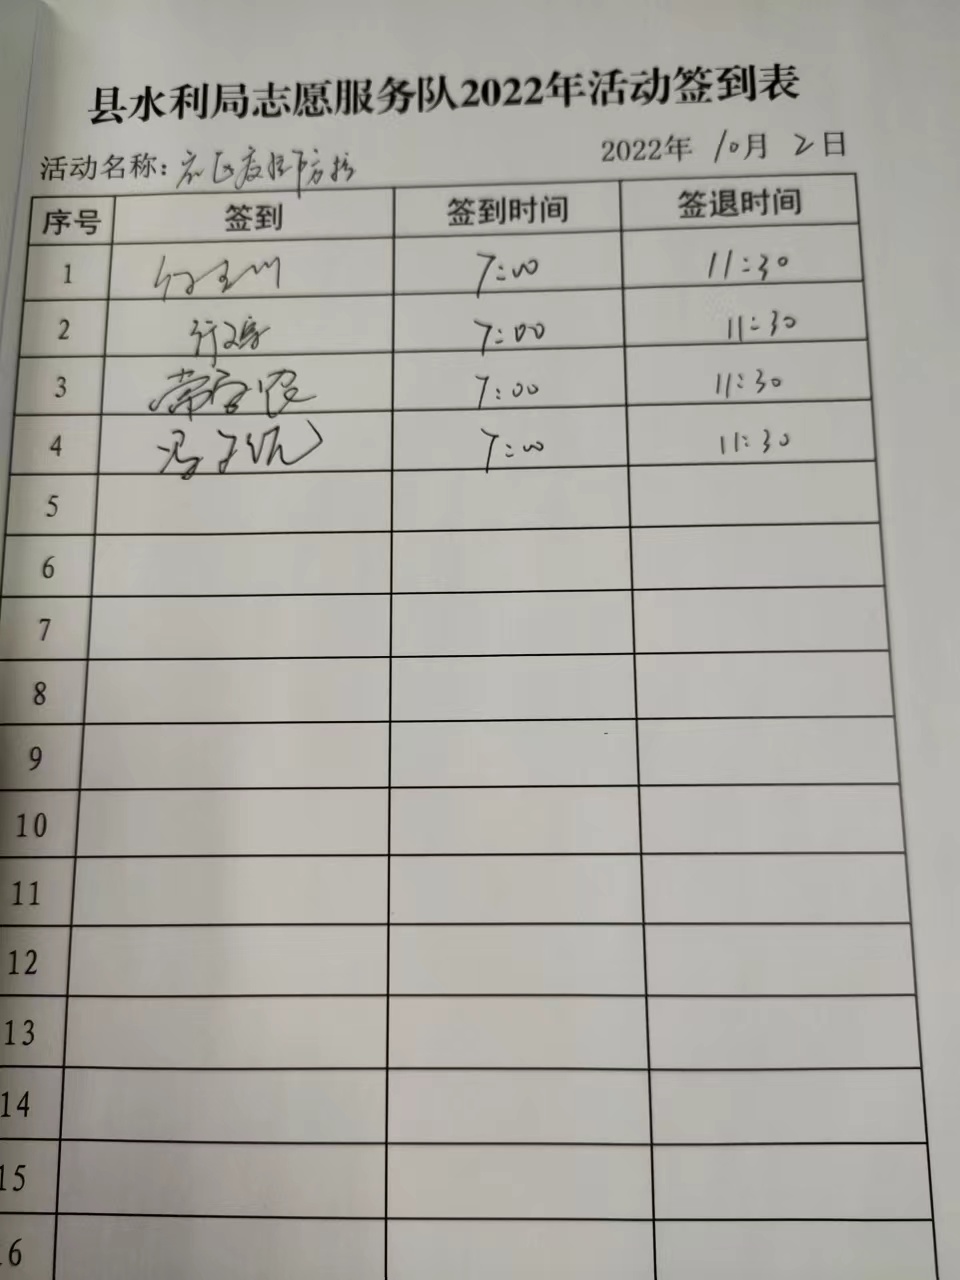 县水利局志愿服务队2022年活动签到表
活动名称：社区疫情防控 2022年 10月 2日
序号 签到 签到时间 签退时间
1 7:00 11:30
2 7:00 11:30
3 7:00 11:30
4 冯 7:00 11:30
5
6
7
8
9
10
11
12
13
14
15
16